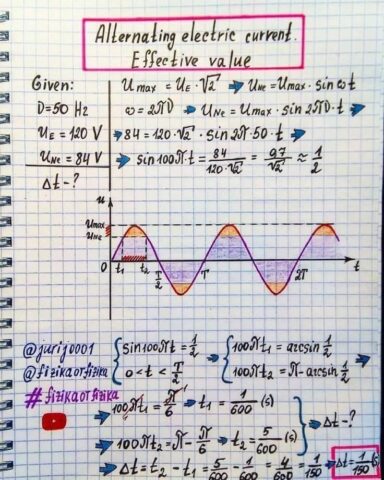 Alternating electric current.
Effective value
Given:
ν=50 Hz
U_E = 120 V
U_Ne = 84 V
Δt - ?
U_max = U_E · √2 ⇒ U_Ne = U_max · sin ωt
ω = 2πν ⇒ U_Ne = U_max · sin 2πν · t ⇒
⇒ 84 = 120 · √2 · sin 2π · 50 · t ⇒
⇒ sin 100π · t = 84/(120·√2) = 0,7/√2 ≈ 1/2
u
U_max
U_Ne
0 t₁ t₂ T/2 T 2T t
@jurij0001
@fizikaotfizika
#fizikaotfizika
{ sin 100πt = 1/2 ⇒ { 100πt₁ = arcsin 1/2 ⇒
0 < t < T/2 100πt₂ = π - arcsin 1/2
⇒ 100πt₁ = π/6 ⇒ t₁ = 1/600 (s)
⇒ Δt - ?
100πt₂ = π - π/6 ⇒ t₂ = 5/600 (s)
⇒ Δt = t₂ - t₁ = 5/600 - 1/600 = 4/600 = 1/150 ⇒ Δt = 1/150 (s)